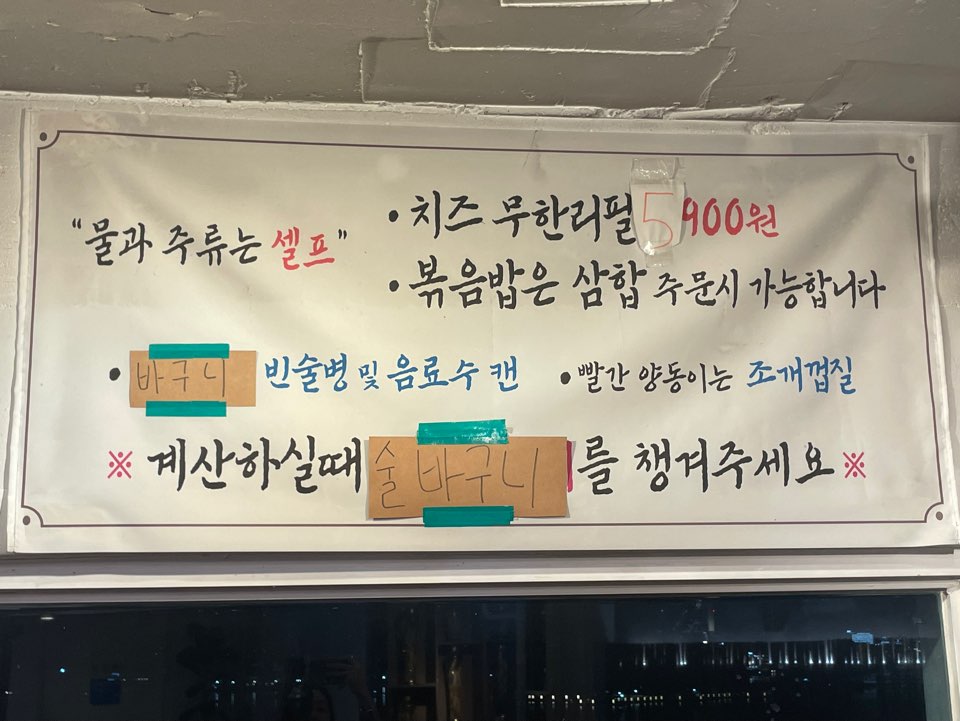 "물과 주류는 셀프"
• 치즈 무한리필 5900원
• 볶음밥은 삼합 주문시 가능합니다
• 바구니 빈술병 및 음료수 캔
• 빨간 양동이는 조개껍질
※ 계산하실때 술 바구니를 챙겨주세요 ※